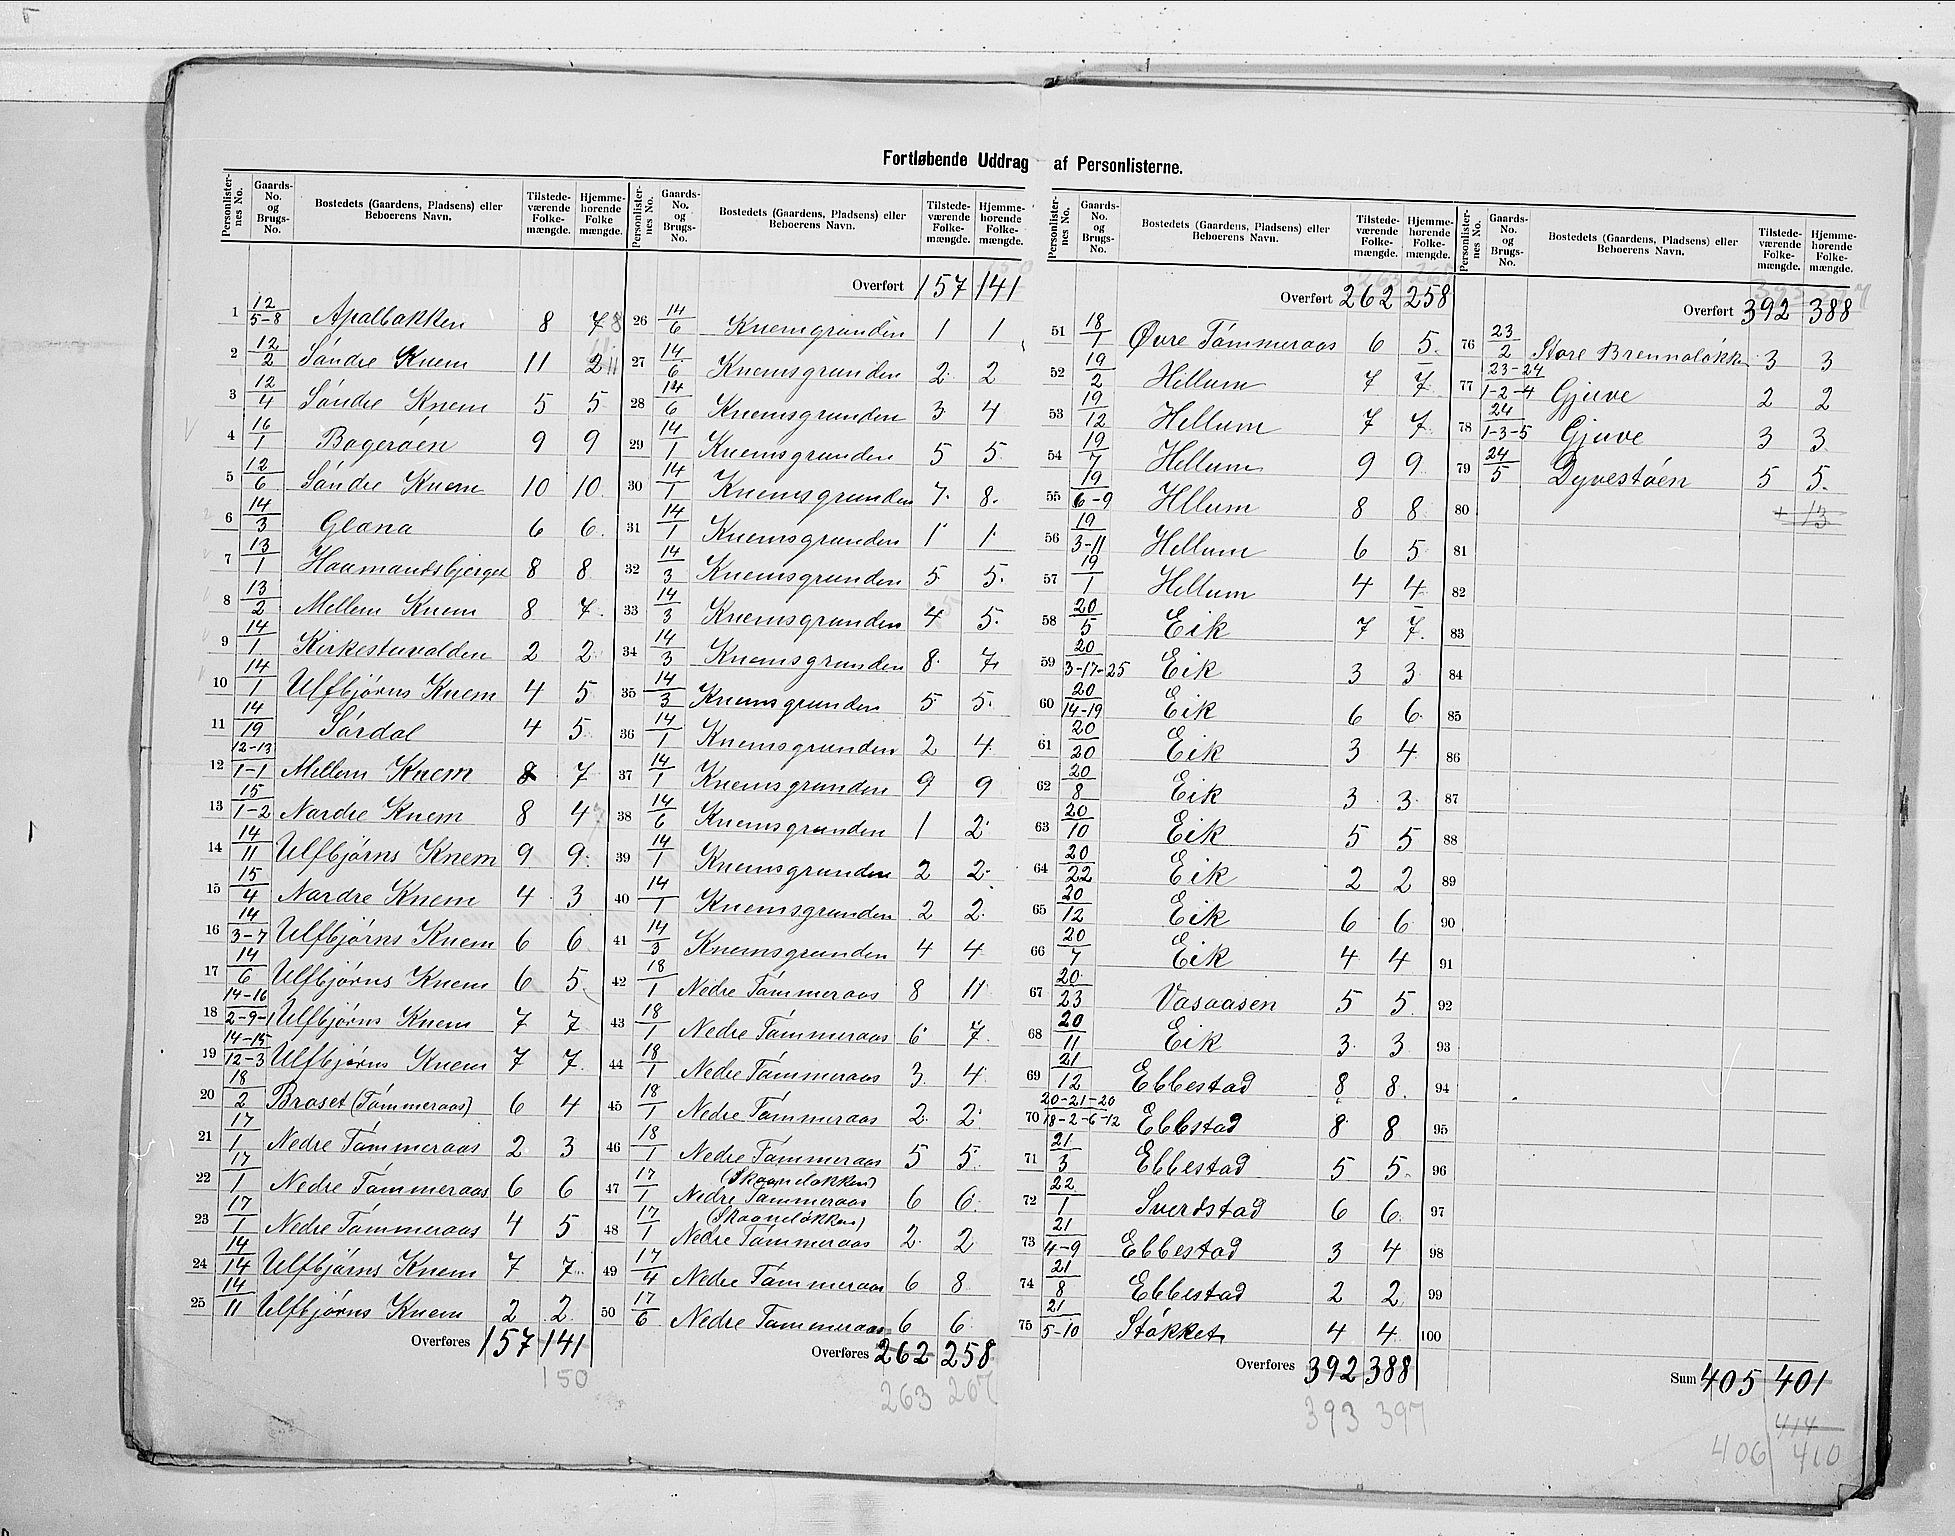 Fortløbende Uddrag af Personlisterne.
Personlister- nes No. | Gaards- No. og Brugs- No. | Bostedets (Gaardens, Pladsens) eller Beboerens Navn. | Tilstede- værende Folke- mængde. | Hjemme- hørende Folke mængde.
1 12/5-8 Apalbakken 8 7 8
2 12/2 Söndre Knem 11 2 11
3 12/4 Söndre Knem 5 5
4 16/1 Bageroen 9 9
5 12/6 Söndre Knem 10 10
6 14/3 Glana 6 6
7 13/1 Haamandsbjerget 8 8
8 13/2 Mellem Knem 8 7
9 14/1 Kirkestuvolden 2 2
10 14/1 Ulfbjørns Knem 4 5
11 14/19 Sördal 4 5
12 12-13/1-1 Mellem Knem 8 7
13 15/1-2 Nordre Knem 8 4
14 14/11 Ulfbjörns Knem 9 9
15 15/4 Nordre Knem 4 3
16 14/3-7 Ulfbjörns Knem 6 6
17 14/6 Ulfbjörns Knem 6 5
18 14-16/2-9-1 Ulfbjörns Knem 7 7
19 14-15/12-3 Ulfbjörns Knem 7 7
20 18/2 Braset (Tömmeraas) 6 4
21 17/1 Nedre Tömmeraas 2 3
22 17/1 Nedre Tömmeraas 6 6
23 17/1 Nedre Tömmeraas 4 5
24 14/14 Ulfbjörns Knem 7 7
25 14/11 Ulfbjørns Knem 2 2
Overføres 157 141
150
Personlister- nes No. | Gaards- No. og Brugs- No. | Bostedets (Gaardens, Pladsens) eller Beboerens Navn. | Tilstede- værende Folke- mængde. | Hjemme- hørende Folke- mængde.
Overført 157 141
26 14/6 Knemgrunden 1 1
27 14/6 Knemsgrunden 2 2
28 14/6 Knemsgrunden 3 4
29 14/1 Knemsgrunden 5 5
30 14/1 Knemsgrunden 7 8
31 14/1 Knemsgrunden 1 1
32 14/3 Knemsgrunden 5 5
33 14/3 Knemsgrunden 4 5
34 14/3 Knemsgrunden 8 7
35 14/3 Knemsgrunden 5 5
36 14/1 Knemsgrunden 2 4
37 14/1 Knemsgrunden 9 9
38 14/6 Knemsgrunden 1 2
39 14/1 Knemsgrunden 2 2
40 14/1 Knemsgrunden 2 2
41 14/3 Knemsgrunden 4 4
42 18/1 Nedre Tömmeraas 8 11
43 18/1 Nedre Tömmeraas 6 7
44 18/1 Nedre Tömmeraas 3 4
45 18/1 Nedre Tömmeraas 2 2
46 18/1 Nedre Tömmeraas 5 5
47 17/1 (Skaaneløkken) Nedre Tömmeraas 6 6
48 17/1 (Skaaneløkken) Nedre Tömmeraas 2 2
49 17/4 Nedre Tömmeraas 6 8
50 17/6 Nedre Tömmeraas 6 6
Overføres 262 258
263 267
Personlister- nes No. | Gaards- No. og Brugs- No. | Bostedets (Gaardens, Pladsens) eller Beboerens Navn. | Tilstede- værende Folke- mængde. | Hjemme- hørende Folke- mængde.
Overført 262 258
51 18/1 Øvre Tömmeraas 6 5
52 19/2 Hellum 7 7
53 19/12 Hellum 7 7
54 19/7 Hellum 9 9
55 19/6-9 Hllum 8 8
56 19/3-11 Hellum 6 5
57 19/1 Hellum 4 4
58 20/5 Eik 7 7
59 20/3-17-25 Eik 3 3
60 20/14-19 Eik 6 6
61 20/20 Eik 3 4
62 20/8 Eik 3 3
63 20/10 Eik 5 5
64 20/22 Eik 2 2
65 20/12 Eik 6 6
66 20/7 Eik 4 4
67 20/23 Vasaasen 5 5
68 20/11 Eik 3 3
69 21/12 Ebbestad 8 8
70 20-21-20/18-2-6-12 Ebbstad 8 8
71 21/3 Ebbestad 5 5
72 22/1 Sverdstad 6 6
73 21/4-9 Ebbestad 3 4
74 21/8 Ebbestad 2 2
75 21/5-10 Stökket 4 4
Overføres 392 388
393 397
Personlister- nes No. | Gaards- No. og Brugs- No. | Bostedets (Gaardens, Pladsens) eller Beboerens Navn. | Tilstede- værende Folke- mængde. | Hjemme- hørende Folke- mængde.
Overført 392 388
76 23/2 Store Brennaløkk 3 3
77 23-24/1-2-4 Gjuve 2 2
78 24/1-3-5 Gjuve 3 3
79 24/5 Dyvestöen 5 5
80 + 13
81
82
83
84
85
86
87
88
89
90
91
92
93
94
95
96
97
98
99
100
Sum 405 401
414
406 410